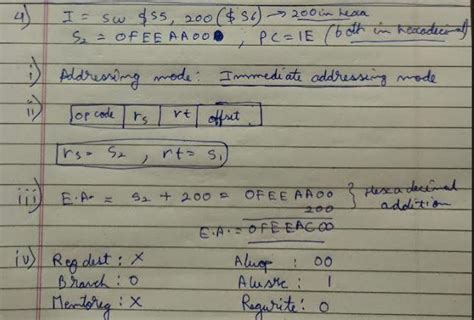 4) I = sw $S5, 200 ($S6) → 200 in hexa
S2 = 0FEEAA00 , PC = 1E (both in hexadecimal)
i) Addressing mode: Immediate addressing mode
ii) opcode | rs | rt | offset
rs = S2 , rt = S1
iii) E.A. = S2 + 200 = 0FEEAA00
200
E.A. = 0FEEAC00
} Hexadecimal addition
iv) Reg dest : X Aluop : 00
Branch : 0 Alusrc : 1
Memtoreg : X Regwrite : 0